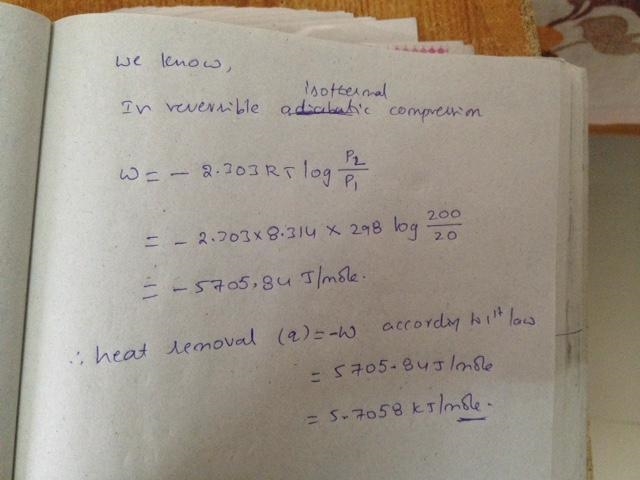 we know,
isothermal
In reversible adiabatic compression
W = - 2.303 RT log P2/P1
= - 2.303 x 8.314 x 298 log 200/20
= - 5705.84 J/mole.
∴ heat removal (q) = -W according to 1st law
= 5705.84 J/mole
= 5.7058 kJ/mole.